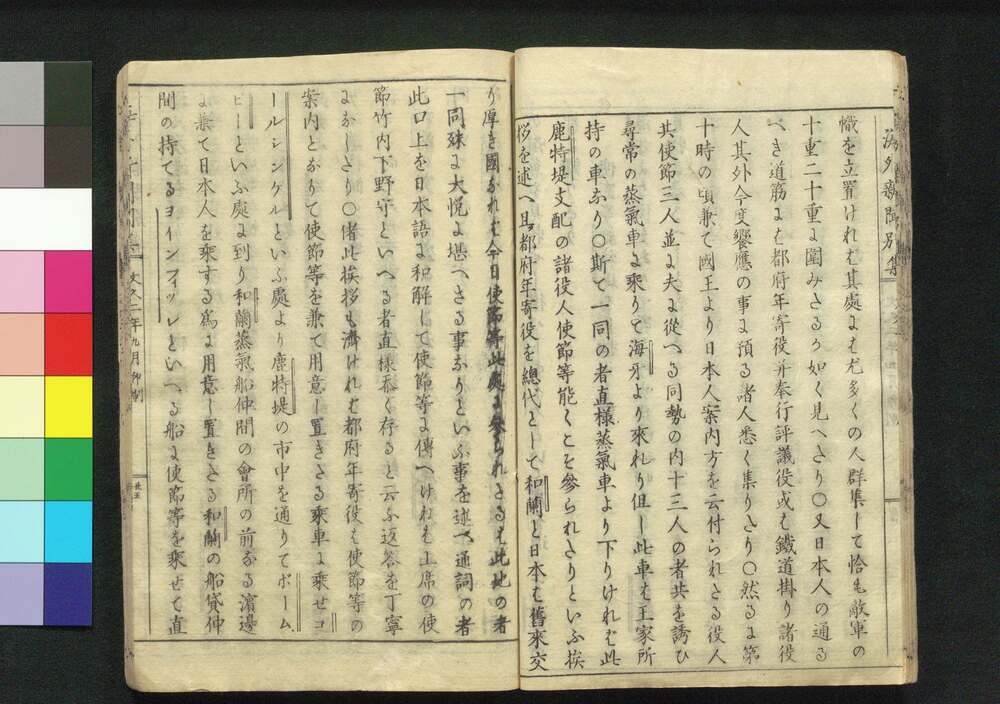 幟を立置けれは其處よも尤多くの人群集して恰も敵軍の
十重二十重よ圍みさるゝ如く見へさり〇又日本人の通る
へき道筋よは都府年寄役并奉行評議役或は鐵道掛り諸役
人其外今度饗應の事よ預る諸人悉く集りさり〇然るよ第
十時の頃兼て國王より日本人案内方を云付られさる役人
共使節三人並よ夫よ從へる同勢の内十三人の者共を誘ひ
尋常の蒸氣車よ乘りて海牙より來れり但し此車は王家所
持の車なり〇斯て一同の者直樣蒸氣車より下りけれは此
鹿特堤支配の諸役人使節等能くこを參られさりといふ挨
拶を述へ且都府年寄役を總代として和蘭と日本は舊來交
り厚き國なれは今日使節等此處よ參られさるは此地の者
一同殊よ大悦よ堪へさる事なりといふ事を述へ通詞の者
此口上を日本語よ和解して使節等よ傳へけれは上席の使
節竹内下野守といへる者直樣忝く存ると云ふ返答を丁寧
よなしさり〇偖此挨拶も濟けれは都府年寄役は使節等の
案内となりて使節等を兼て用意し置きさる乘車よ乘せコ
ールシンゲルといふ處より鹿特堤の市中を通りてボーム
ヒーといふ處よ到り和蘭蒸氣船仲間の會所の前なる濱邊
よ兼て日本人を乘する爲よ用意し置きさる和蘭の船貸仲
間の持てるヨインフィッレといへる船よ使節等を乘せて直
文久二年九月御制